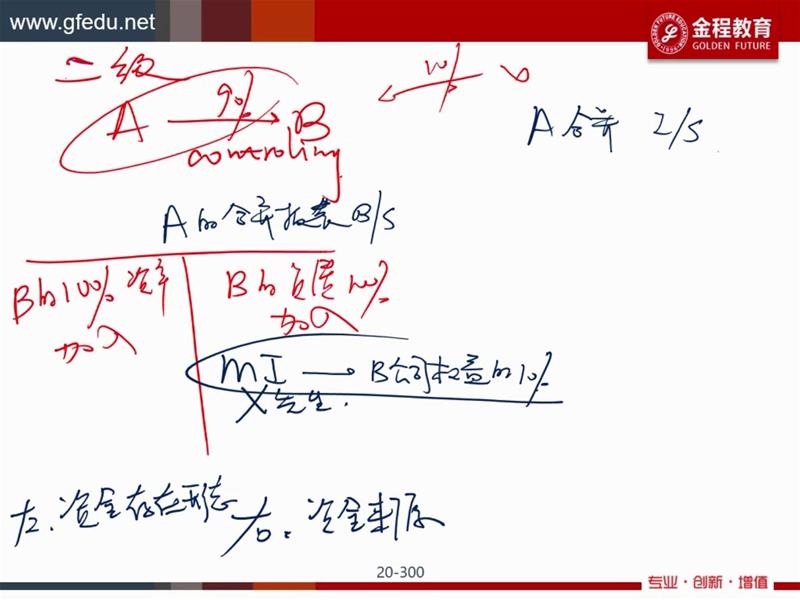 www.gfedu.net
金程教育
GOLDEN FUTURE
二级
A 90% B
controling
10%
A 合并 I/S
A的合并报表 B/S
B的100%资产
加入
B的负债100%
加入
MI → B公司权益的10%
X先生.
左、资金存在形态
右、资金来源
20-300
专业·创新·增值